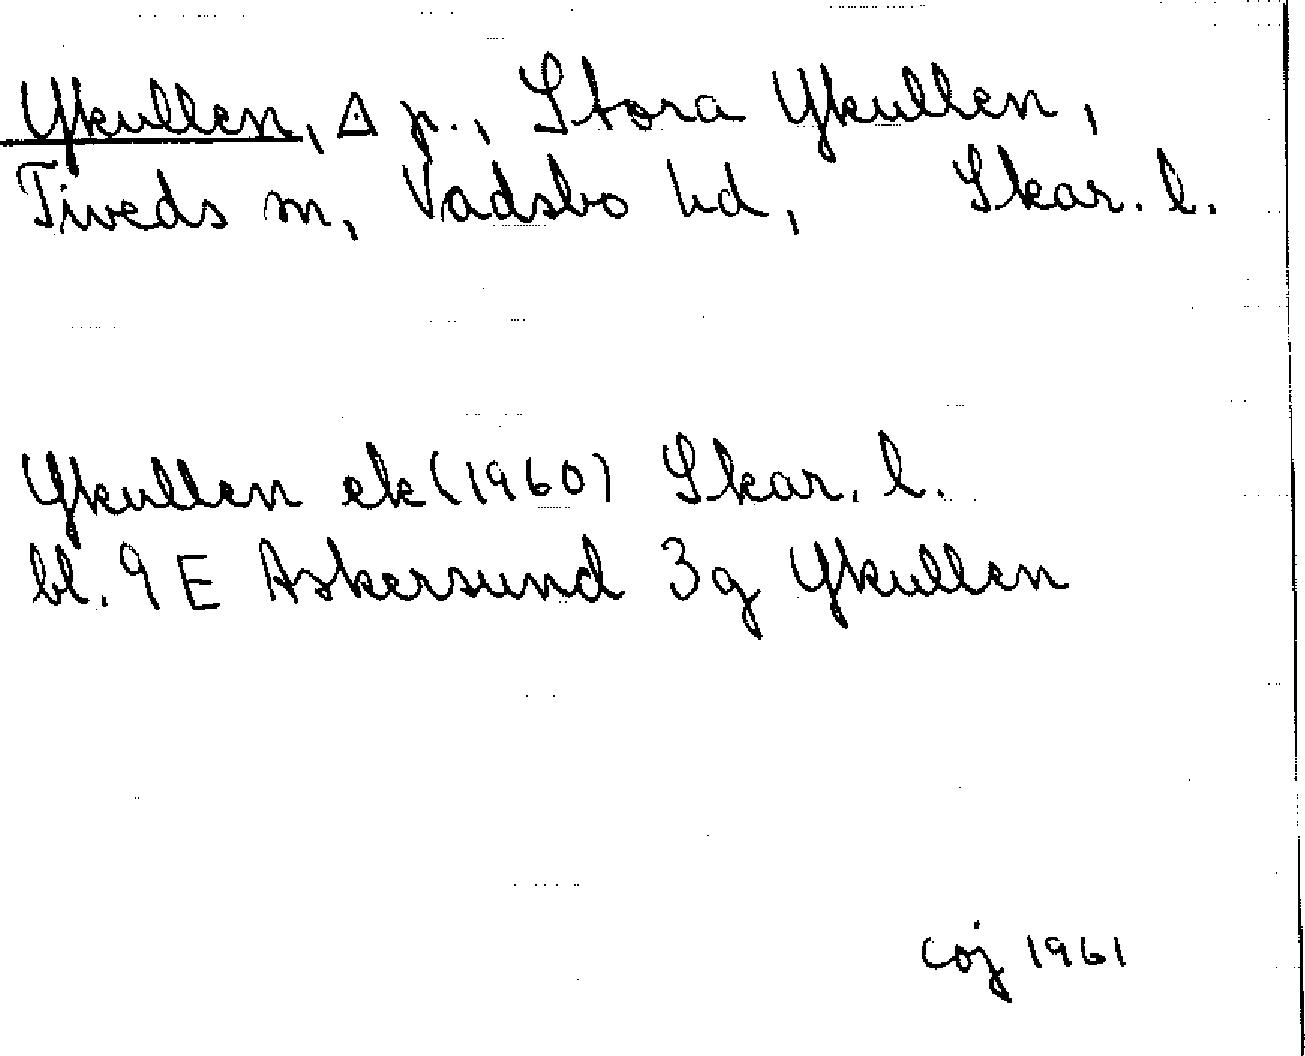 Ykullen, Δ p., Stora Ykullen,
Tiveds sn, Vadsbo hd, Skar. l.
Ykullen ek (1960) Skar. l.
bl. 9E Askersund 3g Ykullen
COJ 1961